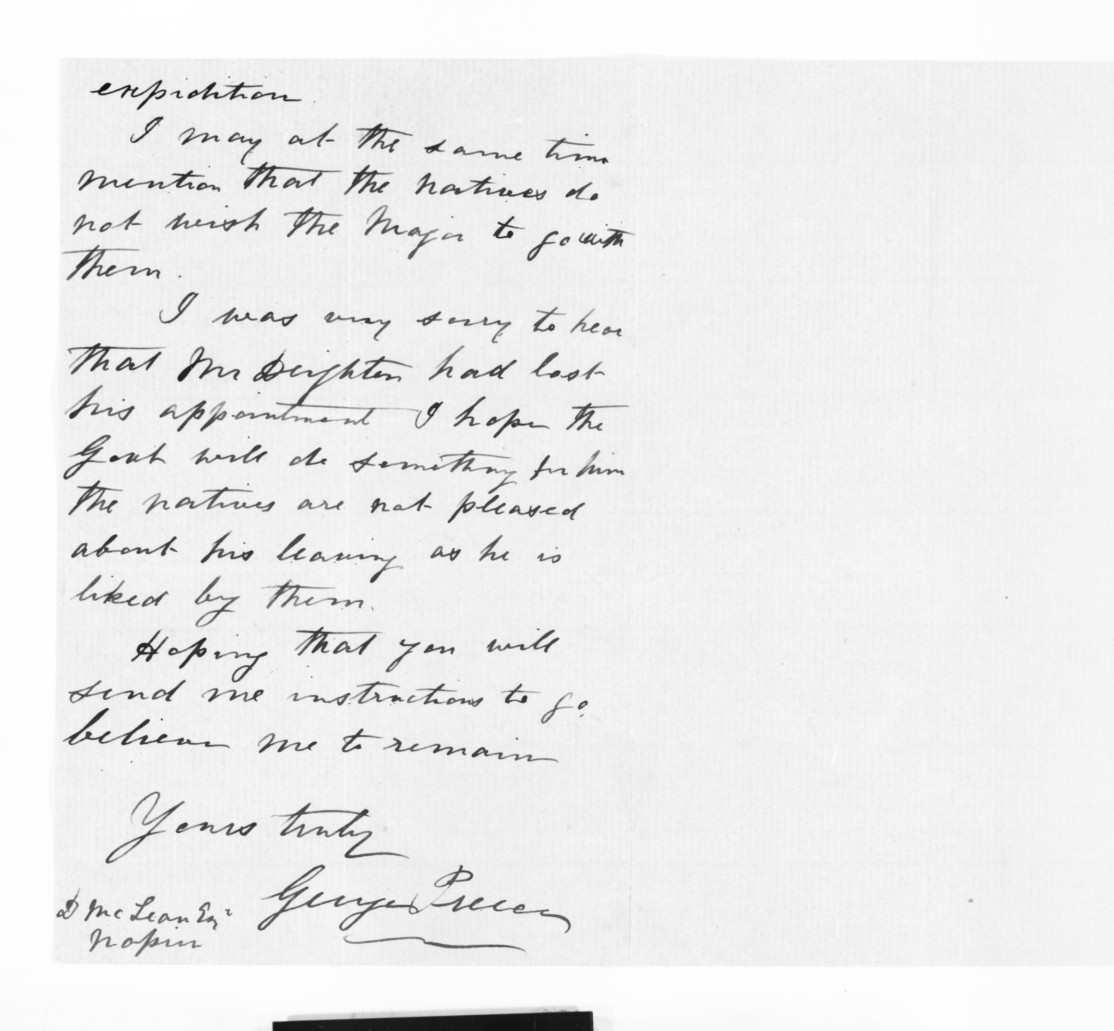 expidition
I may at the same time
mention that the natives do
not wish the Major to go with
them.
I was very sorry to hear
that Mr Deighton had lost
his appointment I hope the
Govt will do something for him
the natives are not pleased
about his leaving as he is
liked by them.
Hoping that you will
send me instructions to go.
believe me to remain
Yours truly
George Preece
D McLean Esqr
Napier